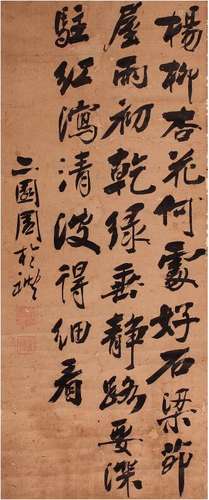 楊柳杏花何處好石梁茆
屋雨初乾綠垂靜路要深
駐紅瀉清波得細看
二園周於礼